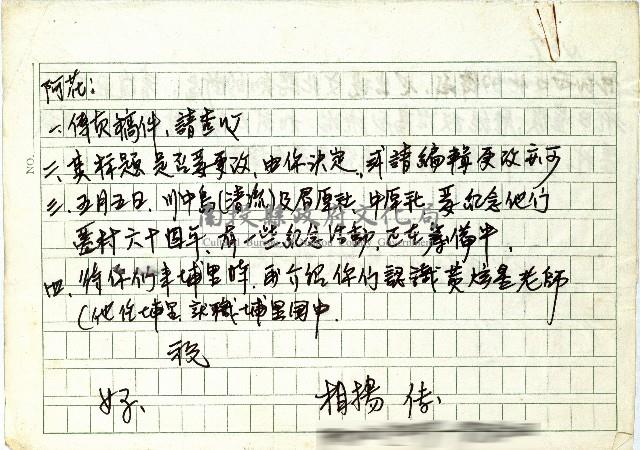 阿花:
一、傳真稿件,請查收
二、奕標題是否要更改,由你決定,或請編輯更改亦可
三、五月五日,川中島(清流)及眉原社、中原社要紀念他們
晉村六十四年,有一些紀念活動正在籌備中,
四、待你們來埔里時,再介紹你們認識黃炫星老師
(他住埔里就職埔里國中.
祝
好、
柏楊 
NO.
南投縣政府文化局